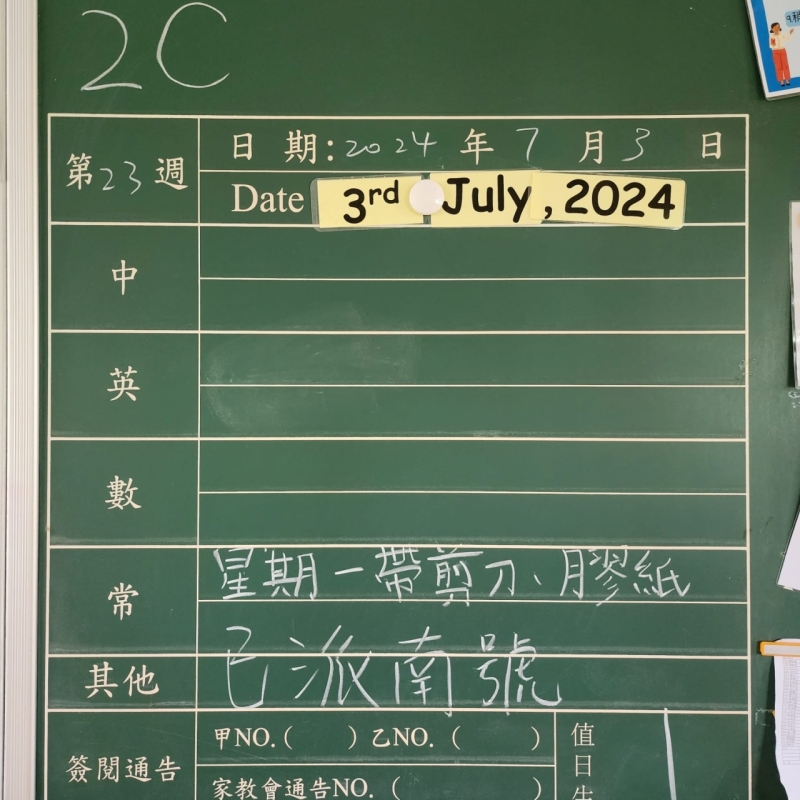 2C
第23週
日期:2024年7月3日
Date 3rd July, 2024
中
英
數
常
星期一帶剪刀、膠紙
其他
已派南號
簽閱通告
甲NO.( )乙NO.( )
家教會通告NO.(
值日